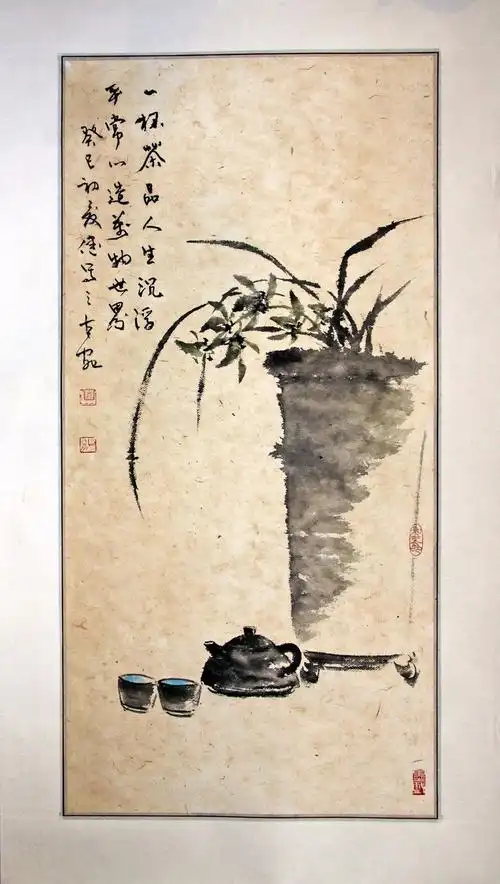 一杯茶品人生沉浮
平常心造萬物世界
癸巳初夏
寫之